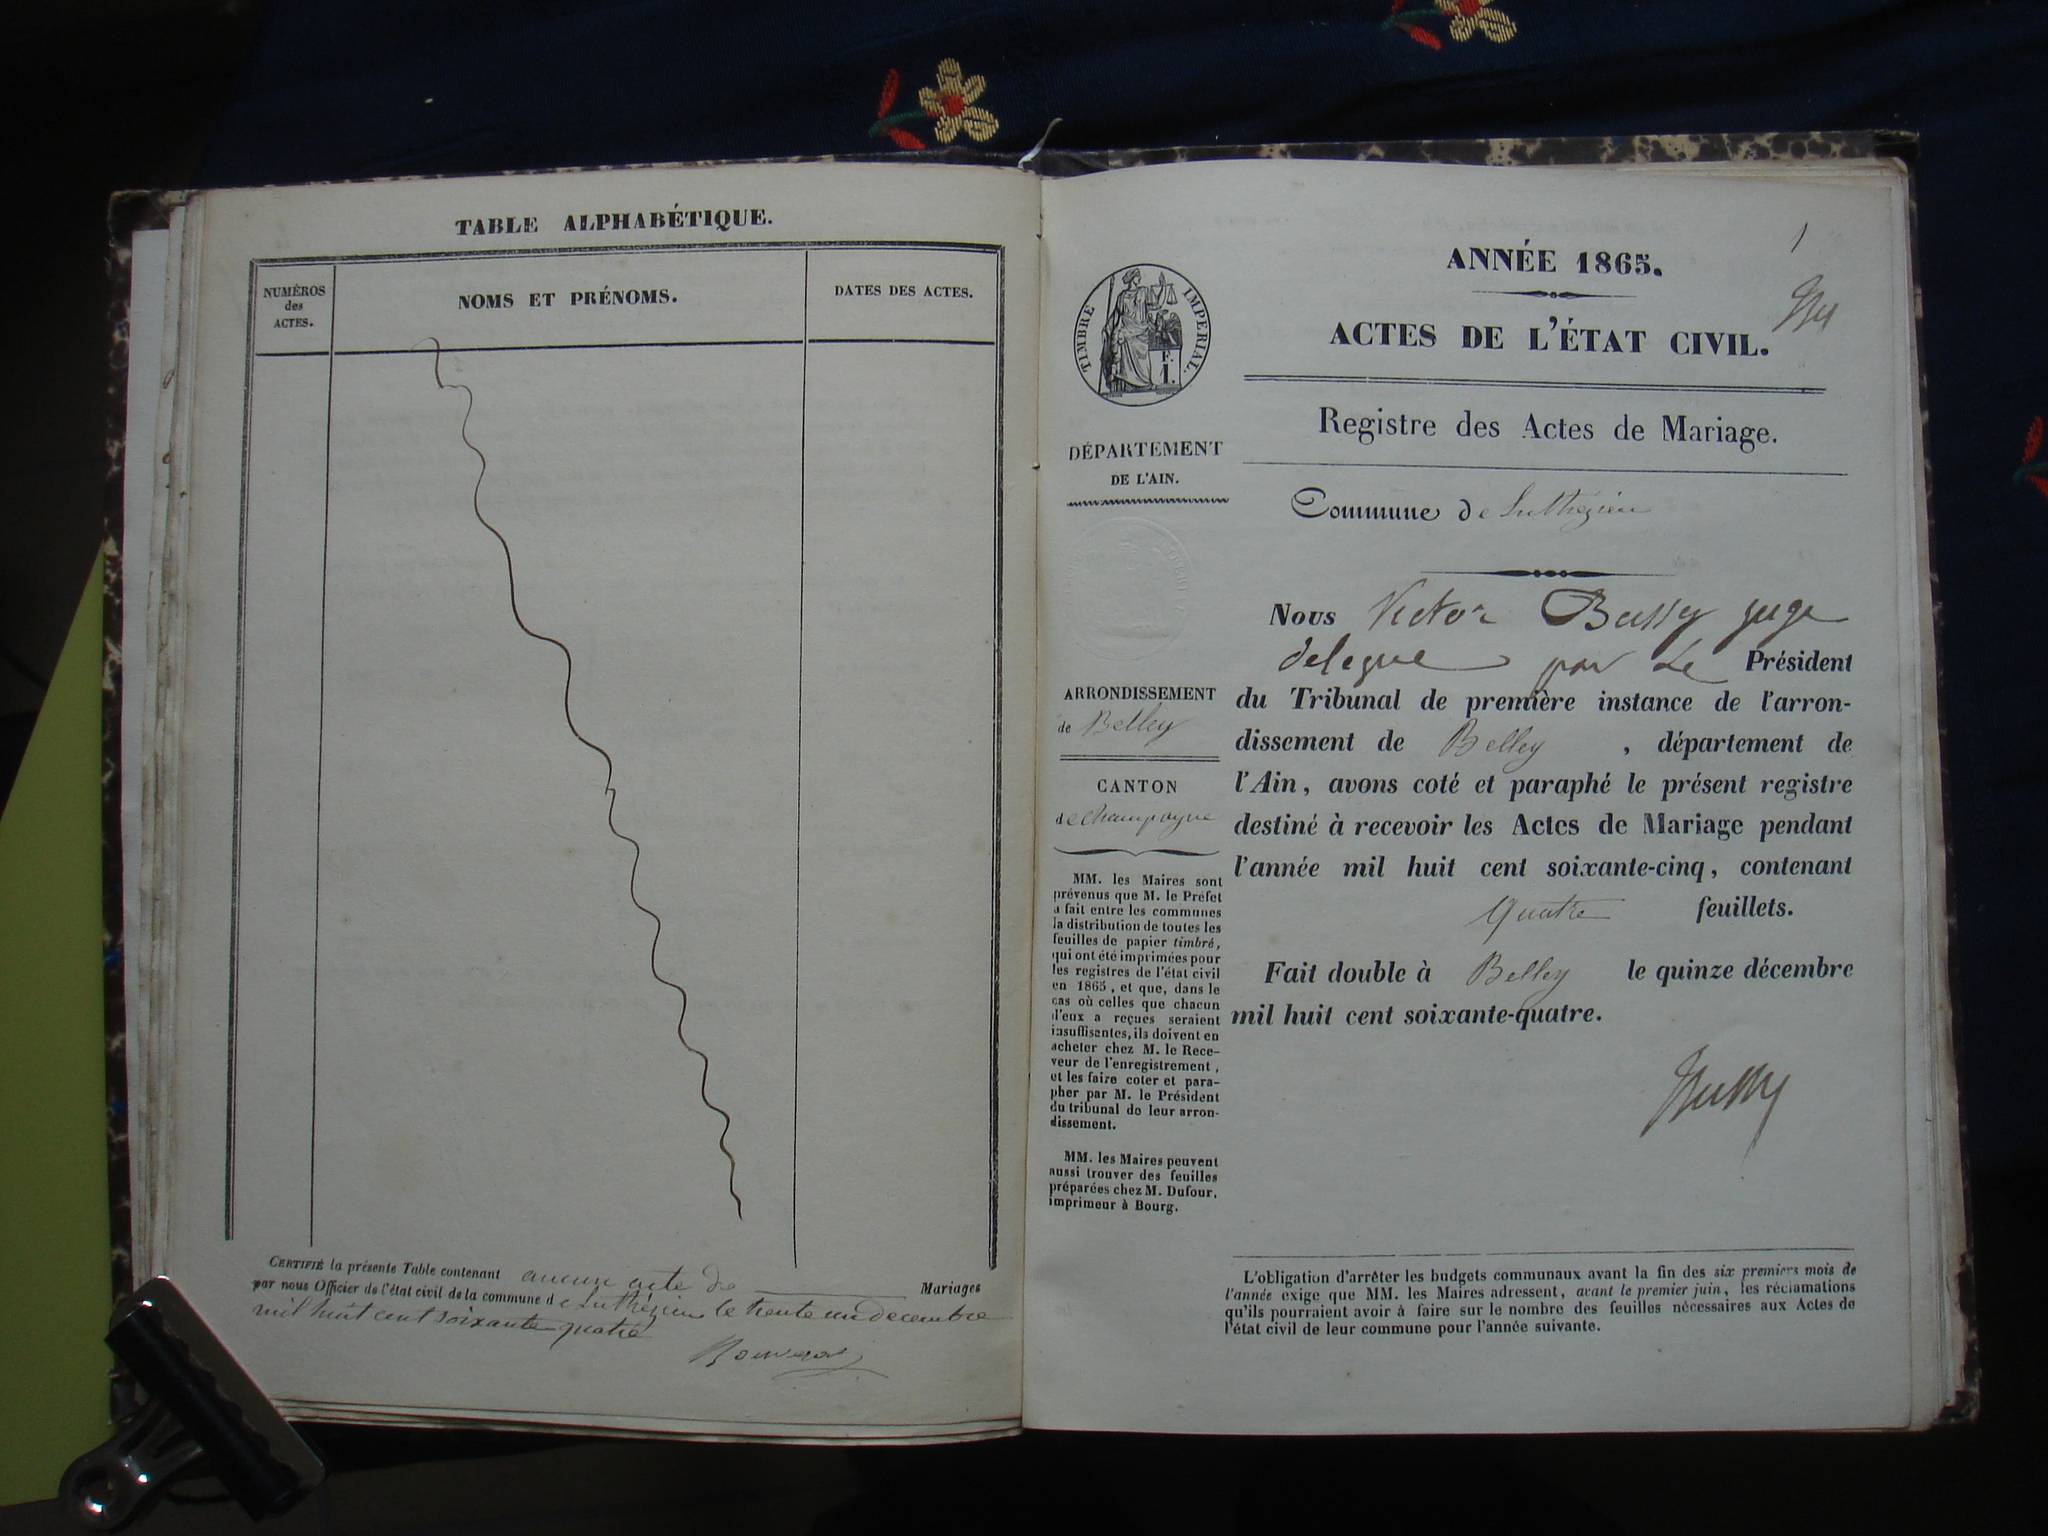 TABLE ALPHABÉTIQUE.
NUMÉROS
des
ACTES.
NOMS ET PRÉNOMS.
DATES DES ACTES.
CERTIFIÉ la présente Table contenant aucun acte de Mariages
par nous Officier de l'état civil de la commune de Luthézieu le trente un decembre
mil huit cent soixante quatre
1
TIMBRE IMPERIAL.
ANNÉE 1865.
ACTES DE L'ÉTAT CIVIL.
Registre des Actes de Mariage.
DÉPARTEMENT
DE L'AIN.
Commune de Luthézieu
ARRONDISSEMENT
de Belley
CANTON
de Champagne
MM. les Maires sont
prévenus que M. le Préfet
a fait entre les communes
la distribution de toutes les
feuilles de papier timbré,
qui ont été imprimées pour
les registres de l'état civil
en 1865, et que, dans le
cas où celles que chacun
d'eux a reçues seraient
insuffisantes, ils doivent en
acheter chez M. le Rece-
veur de l'enregistrement,
et les faire coter et para-
pher par M. le Président
du tribunal de leur arron-
dissement.
MM. les Maires peuvent
aussi trouver des feuilles
préparées chez M. Dufour,
imprimeur à Bourg.
Nous Victor Bussy juge
delegue par Le Président
du Tribunal de première instance de l'arron-
dissement de Belley , département de
l'Ain, avons coté et paraphé le présent registre
destiné à recevoir les Actes de Mariage pendant
l'année mil huit cent soixante-cinq, contenant
quatre feuillets.
Fait double à Belley le quinze décembre
mil huit cent soixante-quatre.
Bussy
L'obligation d'arrêter les budgets communaux avant la fin des six premiers mois de
l'année exige que MM. les Maires adressent, avant le premier juin, les réclamations
qu'ils pourraient avoir à faire sur le nombre des feuilles nécessaires aux Actes de
l'état civil de leur commune pour l'année suivante.